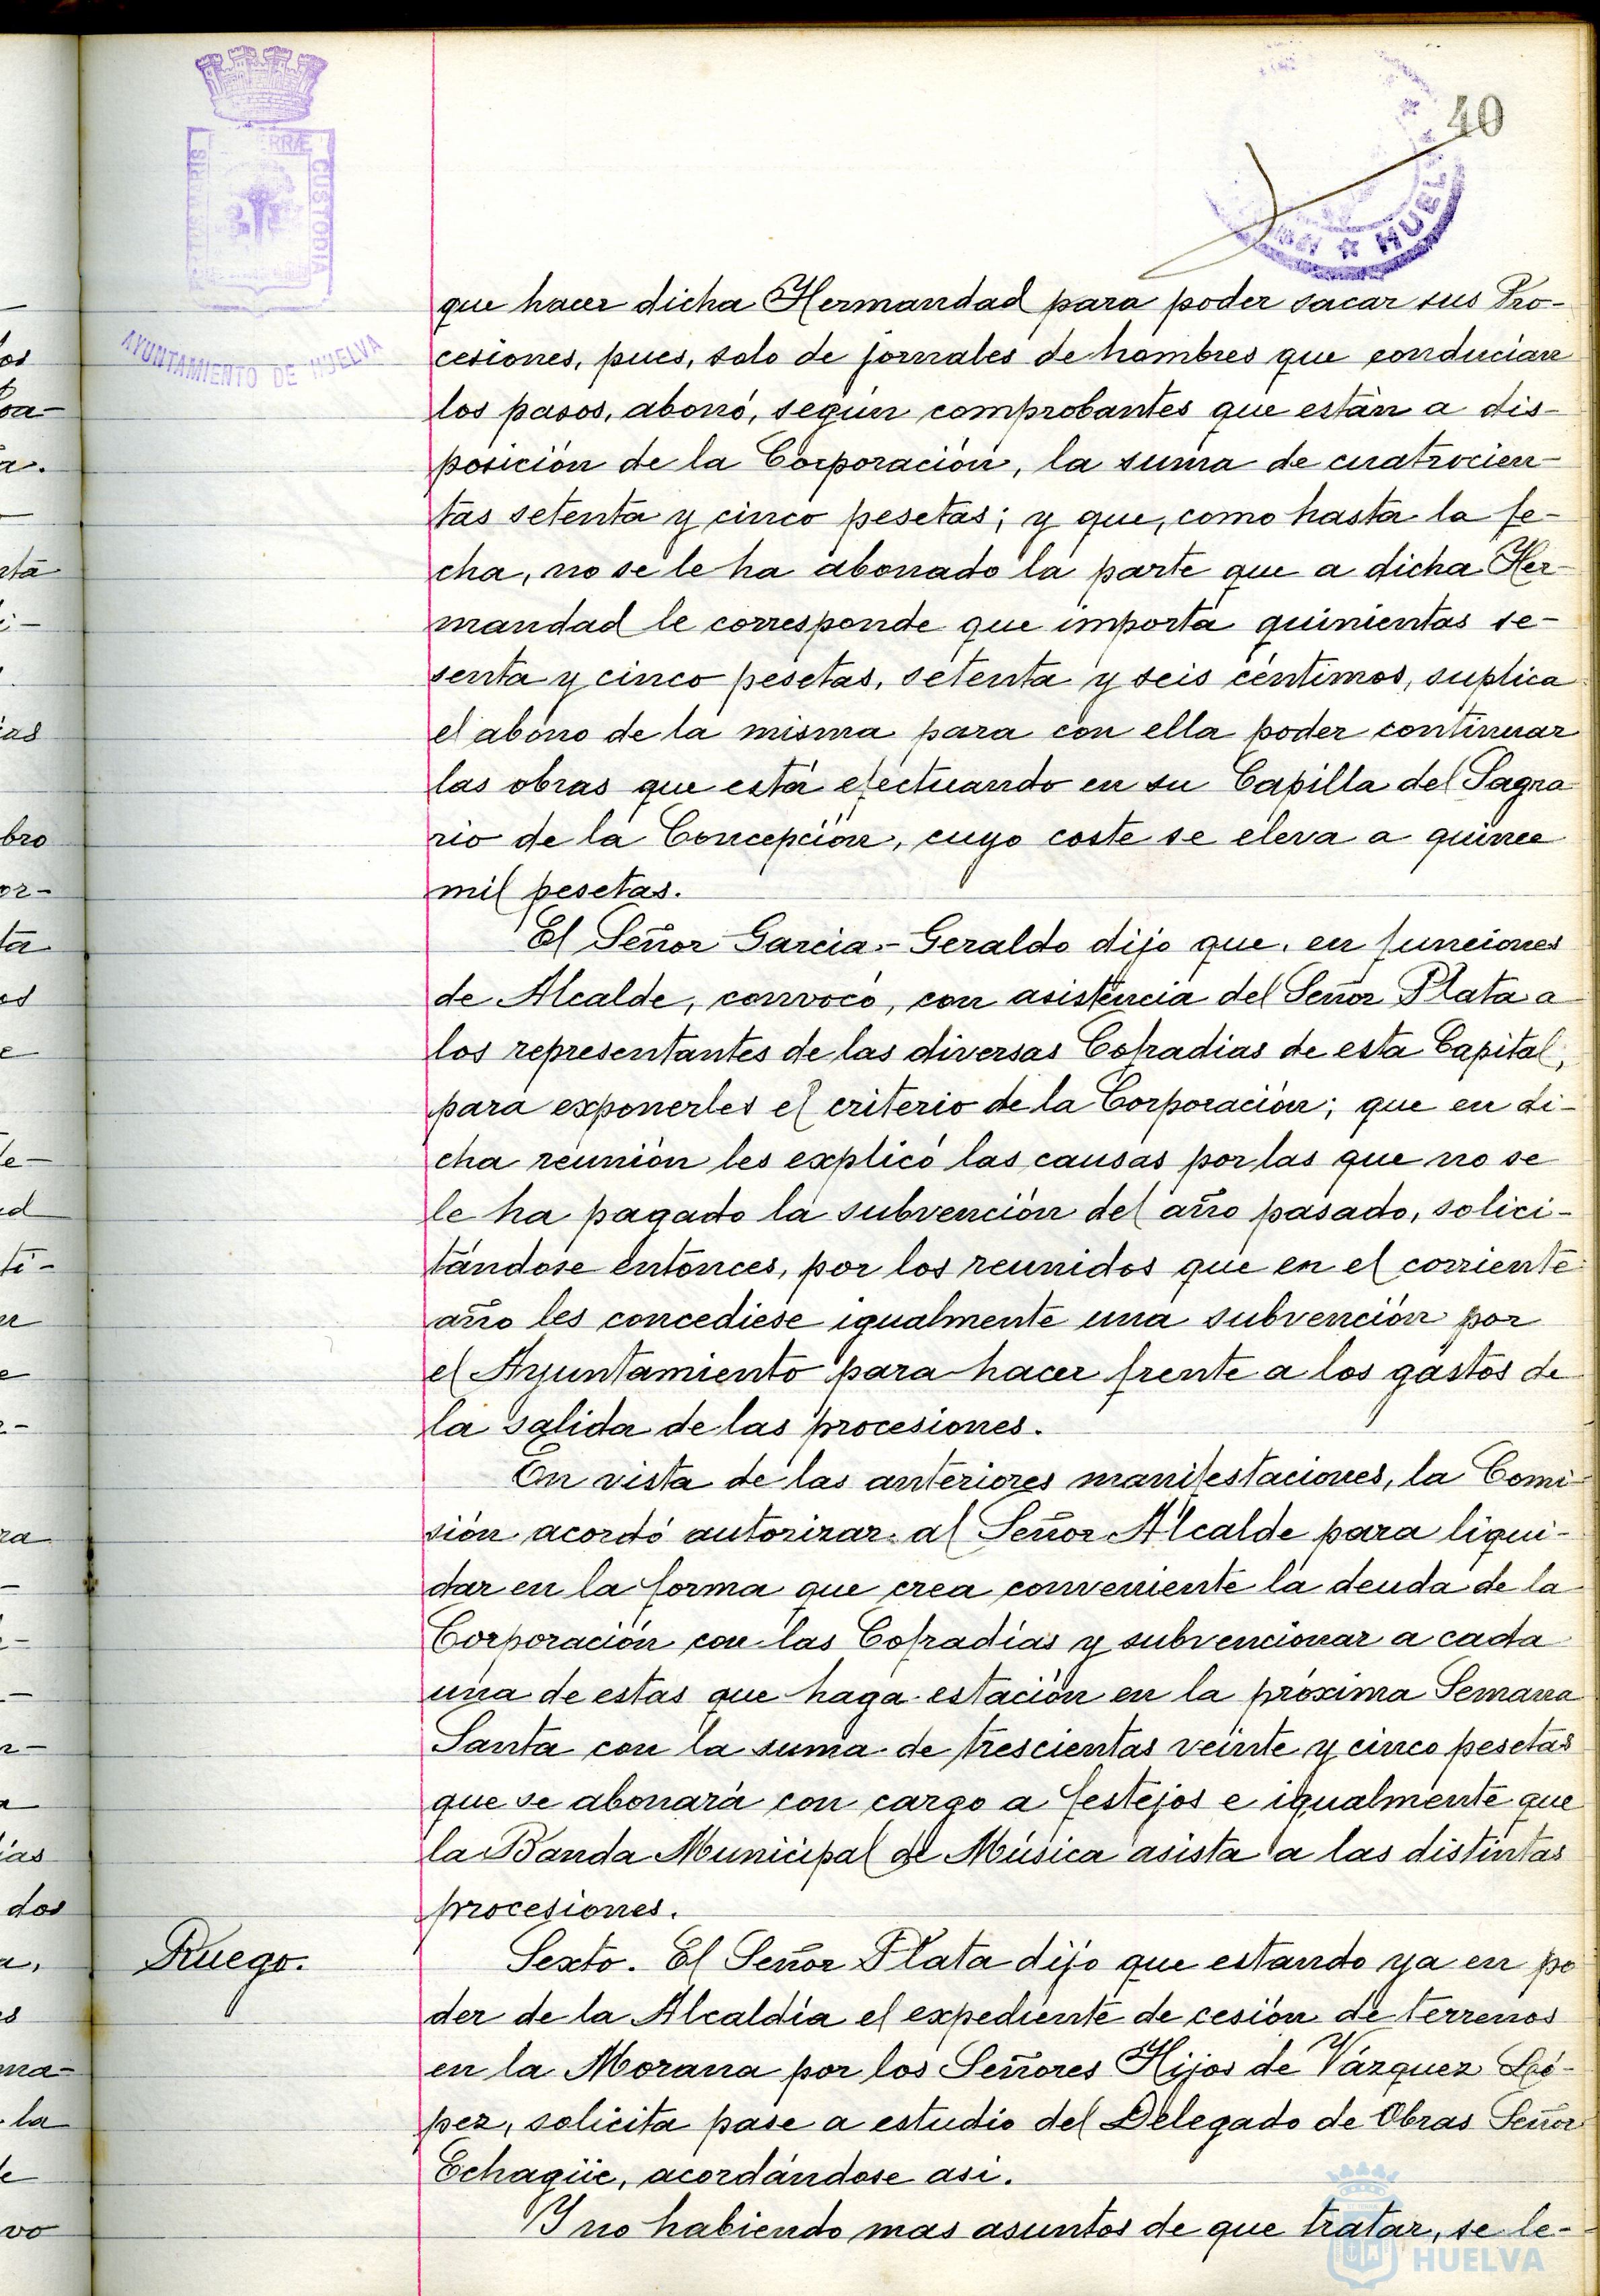 40
HUELVA
AYUNTAMIENTO DE HUELVA
CUSTODIA
que hacer dicha Hermandad para poder sacar sus Pro-
cesiones, pues, solo de jornales de hombres que conducian
los pasos, abonó, según comprobantes que están a dis-
posición de la Corporación, la suma de cuatrocien-
tas setenta y cinco pesetas; y que, como hasta la fe-
cha, no se le ha abonado la parte que a dicha Her-
mandad le corresponde que importa quinientas se-
senta y cinco pesetas, setenta y seis céntimos, suplica
el abono de la misma para con ella poder continuar
las obras que está efectuando en su Capilla del Sagra
rio de la Concepción, cuyo coste se eleva a quince
mil pesetas.
El Señor Garcia-Geraldo dijo que, en funciones
de Alcalde, convocó, con asistencia del Señor Plata a
los representantes de las diversas Cofradias de esta Capital,
para exponerles el criterio de la Corporación; que en di-
cha reunión les explicó las causas por las que no se
le ha pagado la subvención del año pasado, solici-
tándose entonces, por los reunidos que en el corriente
año les concediese igualmente una subvención por
el Ayuntamiento para hacer frente a los gastos de
la salida de las procesiones.
En vista de las anteriores manifestaciones, la Comi-
sión acordó autorizar al Señor Alcalde para liqui-
dar en la forma que crea conveniente la deuda de la
Corporación con las Cofradías y subvencionar a cada
una de estas que haga estación en la próxima Semana
Santa con la suma de trescientas veinte y cinco pesetas
que se abonará con cargo a festejos e igualmente que
la Banda Municipal de Música asista a las distintas
procesiones.
Ruego.
Sexto. El Señor Plata dijo que estando ya en po
der de la Alcaldía el expediente de cesión de terrenos
en la Morana por los Señores Hijos de Vázquez Ló-
pez, solicita pase a estudio del Delegado de Obras Señor
Echagüe, acordándose asi.
Y no habiendo mas asuntos de que tratar, se le-
HUELVA